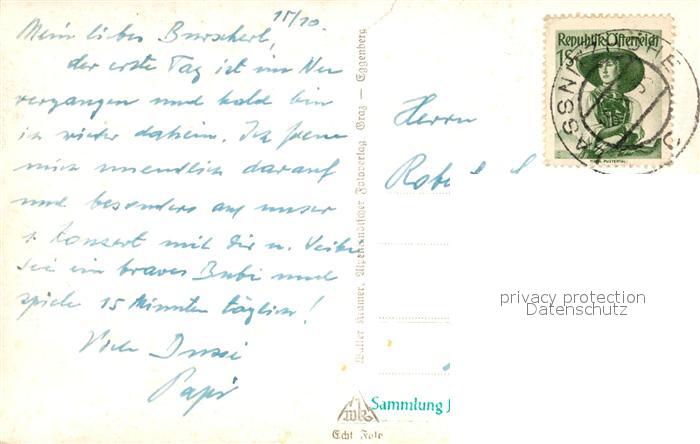 15/10.
Mein liebes Burscherl,
der erste Tag ist im Nu
vergangen und bald bin
ich wieder daheim. Ich freue
mich unendlich darauf
und besonders auf unser
1. Konzert mit Dir u.
Sei ein braves Bubi und
spiele 15 Minuten täglich!
Viele Bussi
Papi
Walter Kramer, Alpenländischer Fotoverlag Graz — Eggenberg
wk
Echt Foto
Republik Österreich
1S
Herrn
Robe
privacy protection
Datenschutz
Sammlung J